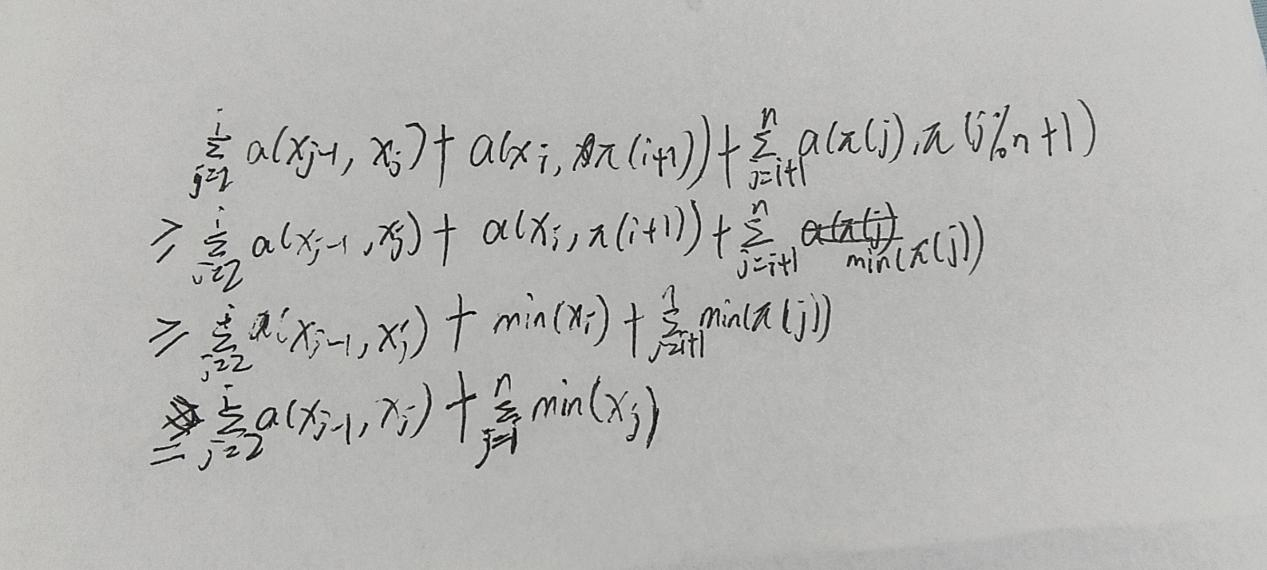 $\sum_{j=2}^{i} a(x_{j-1}, x_j) + a(x_i, \pi(i+1)) + \sum_{j=i+1}^{n} a(\pi(j), \pi(j\%n+1))$
$\geq \sum_{j=2}^{i} a(x_{j-1}, x_j) + a(x_i, \pi(i+1)) + \sum_{j=i+1}^{n} \min(\pi(j))$
$\geq \sum_{j=2}^{i} a(x_{j-1}, x_j) + \min(x_i) + \sum_{j=i+1}^{n} \min(\pi(j))$
$= \sum_{j=2}^{i} a(x_{j-1}, x_j) + \sum_{j=i}^{n} \min(x_j)$